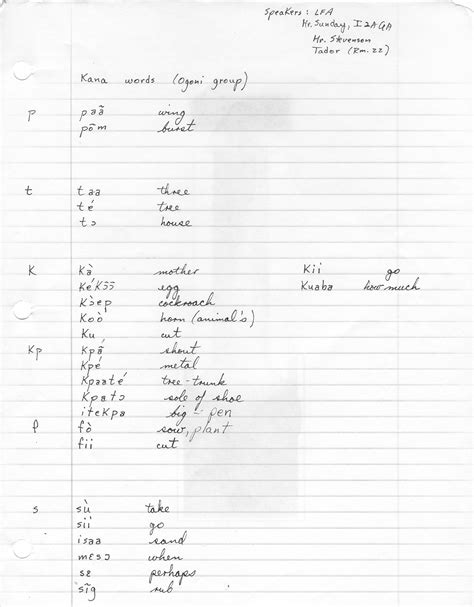 Speakers: LFA
Mr. Sunday, IZAGA
Mr. Stevenson
Tador (Rm. 22)
Kana words (Ogoni group)
p paã wing
põm burst
t taa three
té tree
tɔ house
K Kà mother Kii go
KéKɔ̃ɔ̃ egg Kuaba how much
Kɔ̀ep cockroach
Koò horn (animal's)
Ku cut
Kp Kpã shout
Kpé metal
Kpaaté tree-trunk
Kpatɔ sole of shoe
iteKpa big-pen
f fò sow, plant
fii cut
s sù take
sii go
isaa sand
mɛsɔ when
sɛ perhaps
sĩg rub